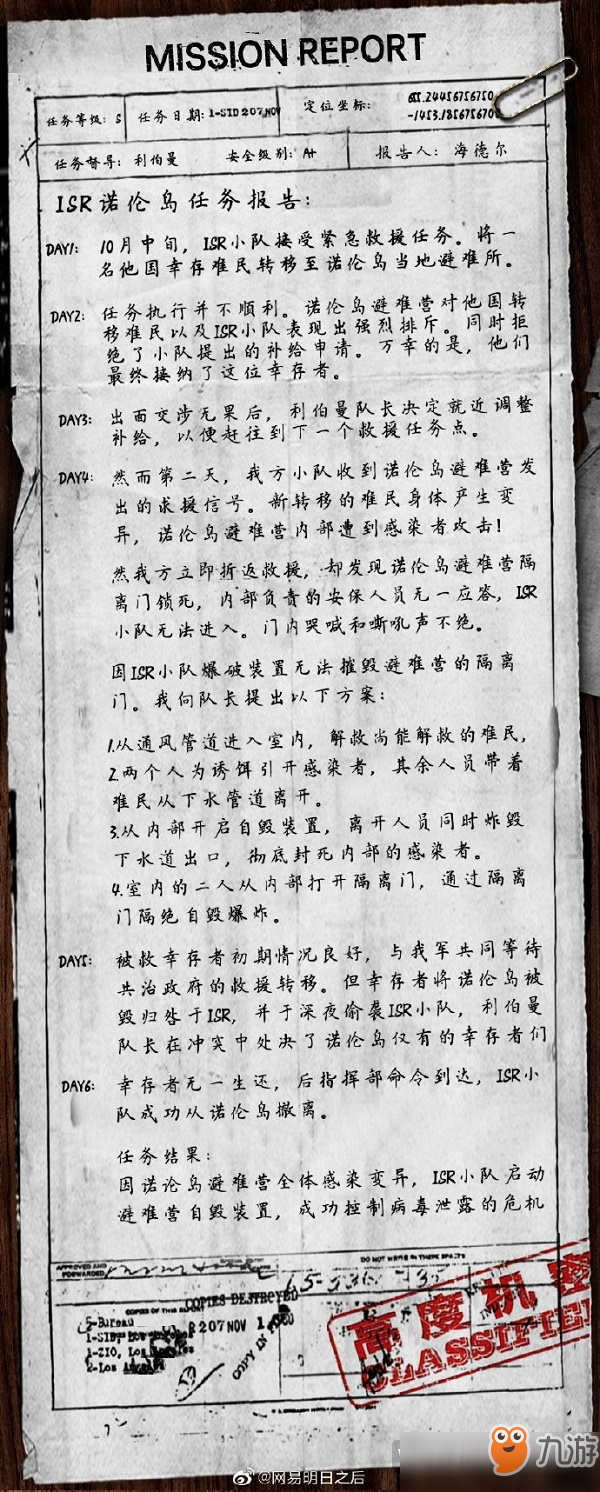 MISSION REPORT
任务等级: S 任务日期: 1-SID 207,NOV 定位坐标: 655.24456756750
-1453.1856756700
任务督导: 利伯曼 安全级别: A+ 报告人: 海德尔
ISR诺伦岛任务报告:
DAY1: 10月中旬,ISR小队接受紧急救援任务。将一
名他国幸存难民转移至诺伦岛当地避难所。
DAY2: 任务执行并不顺利。诺伦岛避难营对他国转
移难民以及ISR小队表现出强烈排斥。同时拒
绝了小队提出的补给申请。万幸的是,他们
最终接纳了这位幸存者。
DAY3: 出面交涉无果后,利伯曼队长决定就近调整
补给,以便赶往到下一个救援任务点。
DAY4: 然而第二天,我方小队收到诺伦岛避难营发
出的求援信号。新转移的难民身体产生变
异,诺伦岛避难营内部遭到感染者攻击!
然我方立即折返救援,却发现诺伦岛避难营隔
离门锁死,内部负责的安保人员无一应答,ISR
小队无法进入。门内哭喊和嘶吼声不绝。
因ISR小队爆破装置无法摧毁避难营的隔离
门。我向队长提出以下方案:
1.从通风管道进入室内,解救尚能解救的难民,
2.两个人为诱饵引开感染者,其余人员带着
难民从下水管道离开。
3.从内部开启自毁装置,离开人员同时炸毁
下水道出口,彻底封死内部的感染者。
4.室内的二人从内部打开隔离门,通过隔离
门隔绝自毁爆炸。
DAY5: 被救幸存者初期情况良好,与我军共同等待
共治政府的救援转移。但幸存者将诺伦岛被
毁归咎于ISR,并于深夜偷袭ISR小队,利伯曼
队长在冲突中处决了诺伦岛仅有的幸存者们
DAY6: 幸存者无一生还,后指挥部命令到达,ISR小
队成功从诺伦岛撤离。
任务结果:
因诺论岛避难营全体感染变异,ISR小队启动
避难营自毁装置,成功控制病毒泄露的危机
APPROVED AND
FORWARDED
DO NOT WRITE IN THESE SPACES
COPIES DESTROYED
COPIES OF THIS
5-Bureau
207 NOV 1
1-ZIO, Los
2-Los
COPY IN
高度机密
CLASSIFIED
@网易明日之后
九游